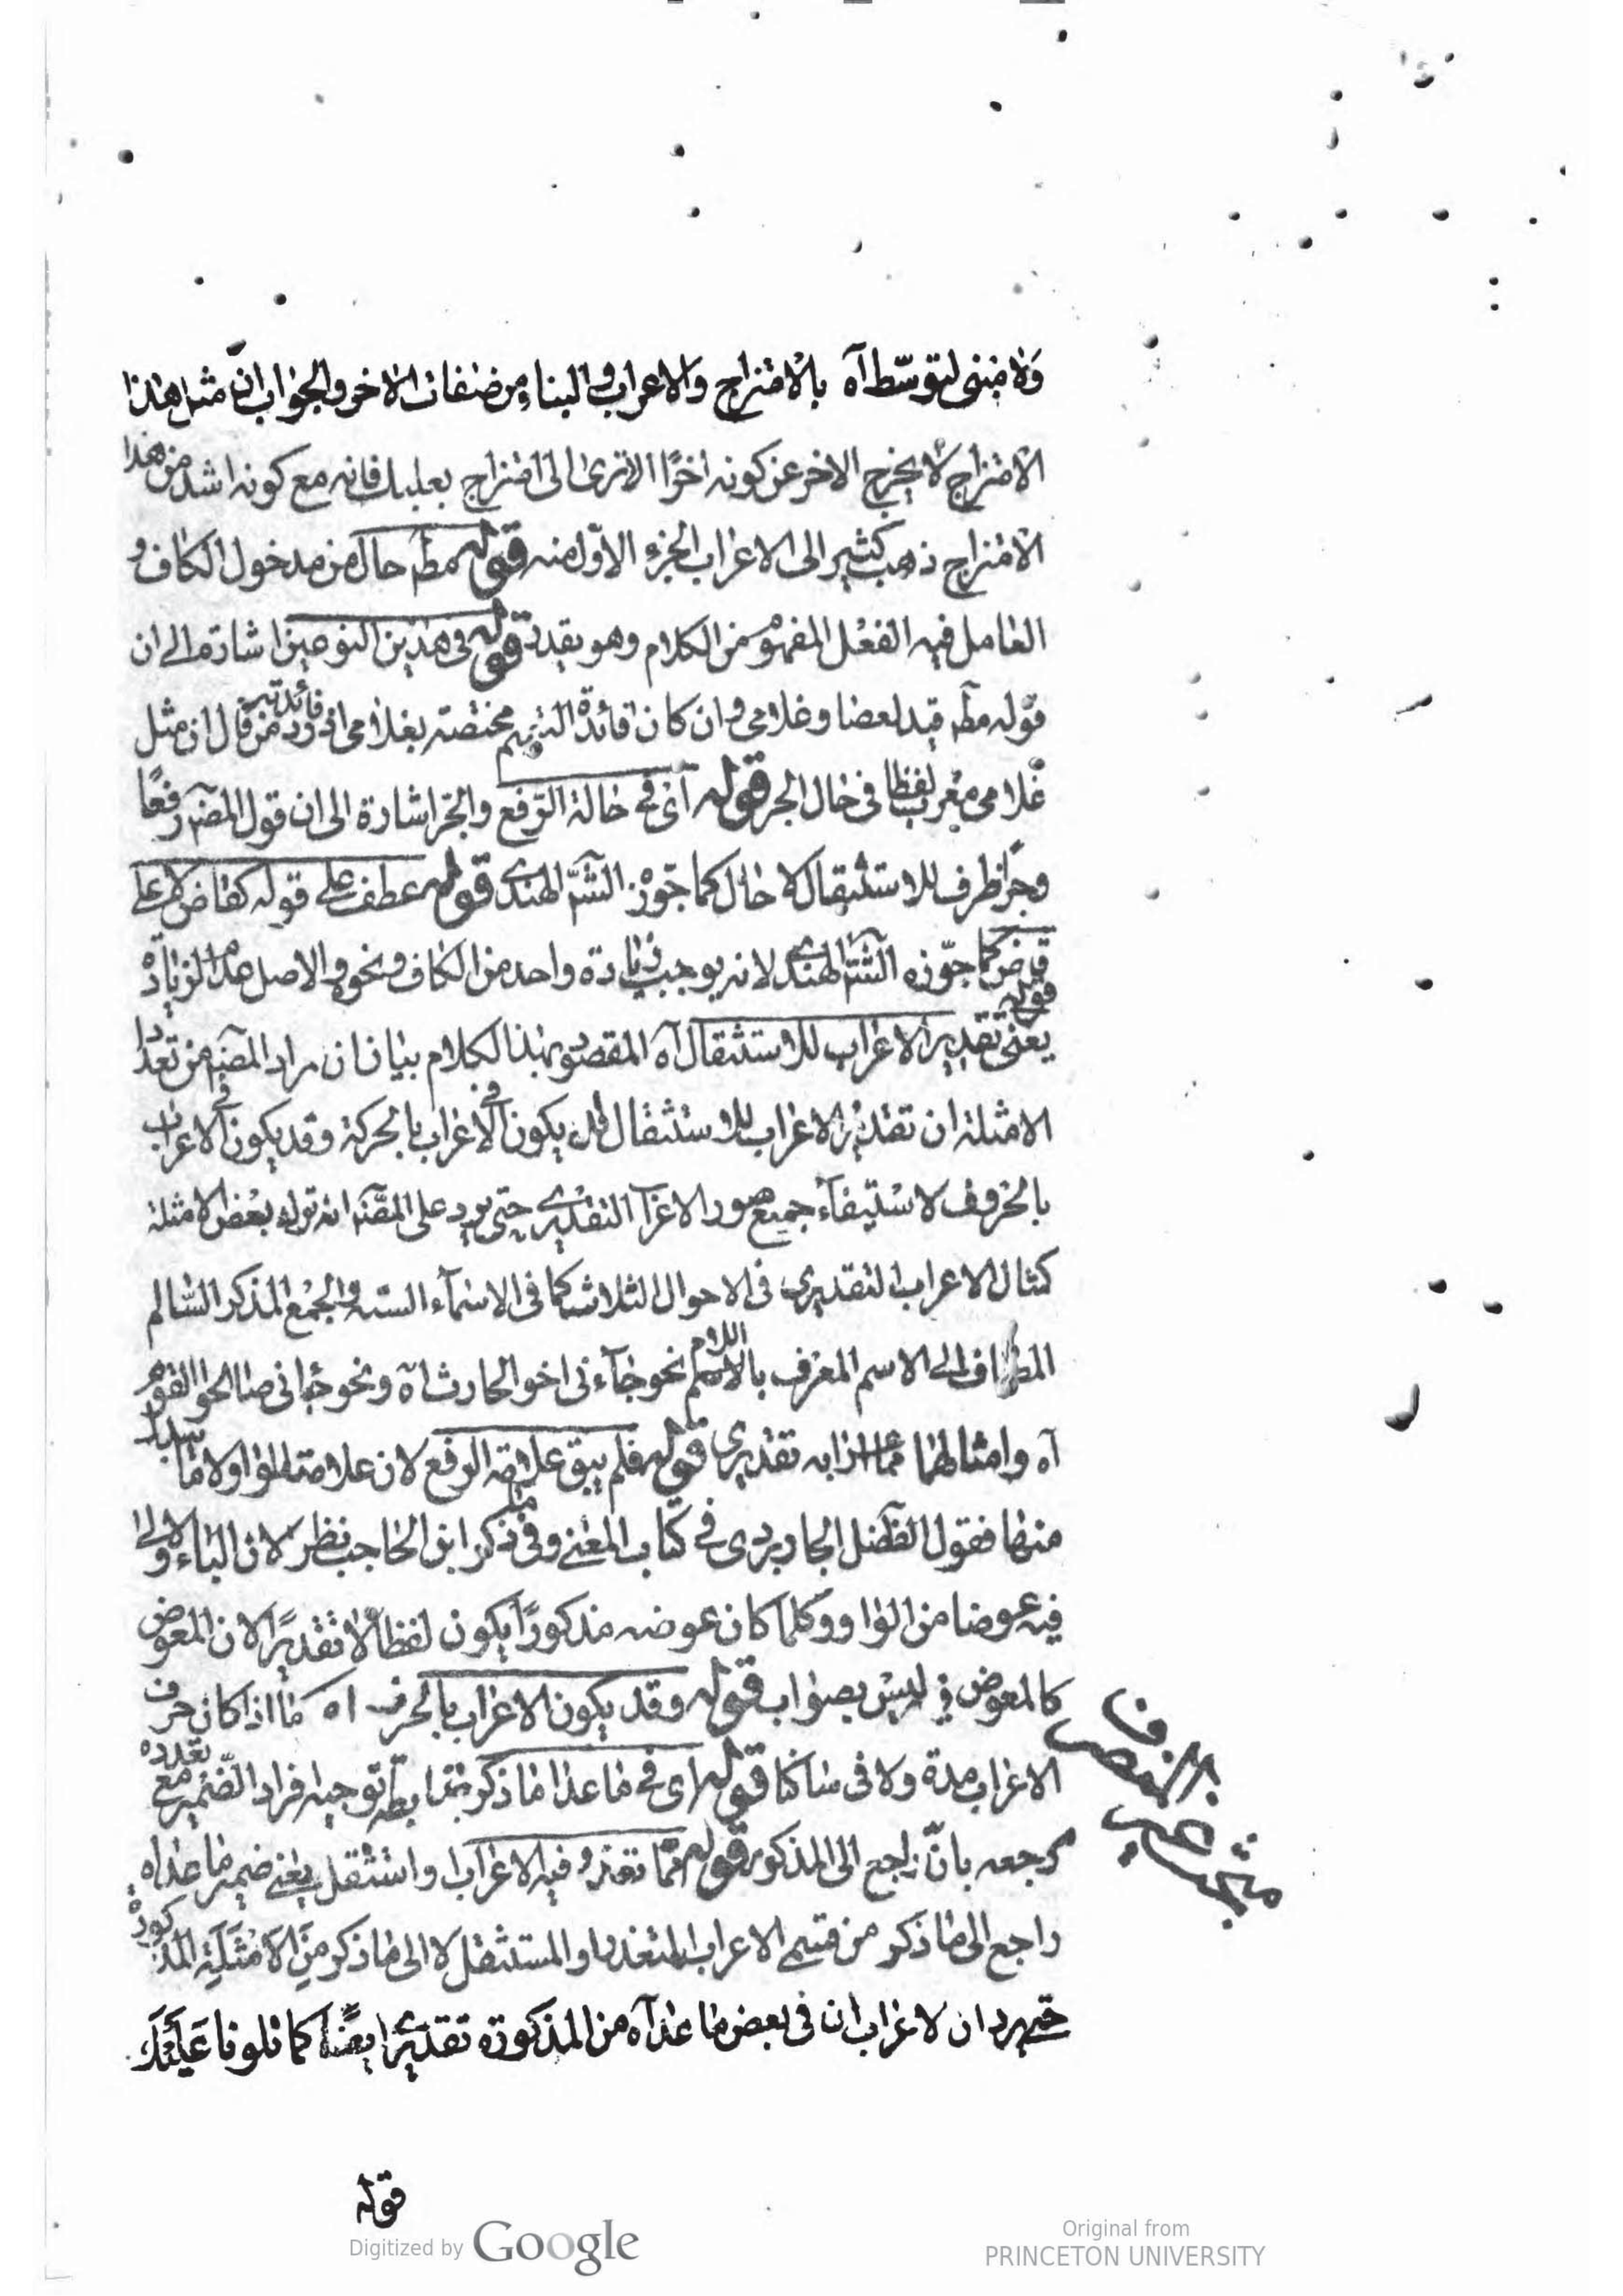 ولا مبنى لتوسّط آه بالامتزاج والاعراب والبناء من صفات الاخر والجواب انّ مثل هذا
الامتزاج لا يخرج الاخر عن كونه اخرًا الا ترى الى امتزاج بعلبك فانه مع كونه اشد من هذا
الامتزاج ذهب كثير الى الاعراب الجزء الاوّل منه قوله مطم حال من مدخول الكاف و
العامل فيه الفعل المفهوم من الكلام وهو يقدر قوله فى هذين النوعين اشارة الى ان
قوله مطم قيد لعصا وغلامى وان كان فائدة التعميم مختصة بغلامى اذ فائدته رد من قال ان مثل
غلامى معرب لفظا فى حال الجر قوله اى فى حالة الرّفع والجرّ اشارة الى ان قول المصنّف رفعًا
وجرًا ظرف للاستثقال لا حال كما جوّزه الشّ الهندى قوله عطف على قوله كقاض لا على
قاض كما جوّزه الشّ الهندى لانه يوجب زيادة واحد من الكاف ونحو والاصل عدم الزيادة
قوله يعنى تقدير الاعراب للاستثقال آه المقصود بهذا الكلام بيان ان مراد المصنّف من تعداد
الامثلة ان تقدير الاعراب للاستثقال قد يكون فى الاعراب بالحركة وقد يكون فى الاعراب
بالحروف لا استيفاء جميع صور الاعراب التقديرى حتى يرد على المصنّف انه ترك بعض الامثلة
كمثال الاعراب التقديرى فى الاحوال الثلاث كما فى الاسماء الستة والجمع المذكر السّالم
المضاف الى الاسم المعرف باللام نحو جاءنى اخو الحارث آه ونحو جاءنى صالحو القوم
آه وامثالهما مما اعرابه تقديرى قوله فلم يبق علامة الرفع لان علامته الواو ولا ما بدل
منها فقول الفضل الجاربردى فى كتاب المغنى وفى ما ذكر ابن الحاجب نظر لان الياء الاولى
فيه عوضا من الواو وكلما كان عوضه مذكورًا يكون لفظا لا تقديرًا لان المعوض
كالمعوض فى ليس بصواب قوله وقد يكون الاعراب بالحرف اه كما اذا كان حرف
الاعراب مدة ولاقى ساكنا قوله اى فى ما عدا ما ذكر توجيه افراد الضّمير مع تعدد
مرجعه بانّ راجع الى المذكور قوله ممّا تعذر فيه الاعراب واستثقل يعنى ضمير ما عداه
راجع الى ما ذكر من قسمى الاعراب المتعذر والمستثقل لا الى ما ذكر من الامثلة المذكورة
حتى يرد ان الاعراب ان فى بعض ما عداه من المذكورة تقديرى ايضًا كما تلونا عليك
قوله
Digitized by Google
Original from
PRINCETON UNIVERSITY